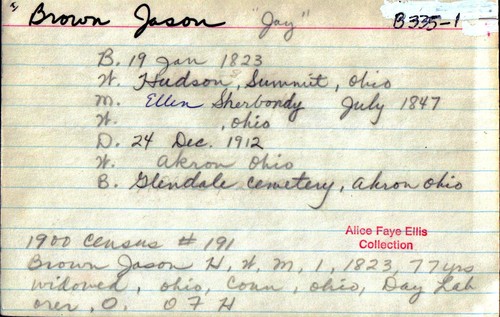 Brown Jason "Jay" B335-1
B. 19 Jan 1823
W. Hudson, Summit, Ohio
M. Ellen Sherbondy July 1847
W. , Ohio
D. 24 Dec. 1912
W. Akron Ohio
B. Glendale Cemetery, Akron Ohio
Alice Faye Ellis
Collection
1900 Census # 191
Brown Jason H, W, M, 1, 1823, 77 yrs
widowed, Ohio, Conn, Ohio, Day Lab
orer, O. O F H